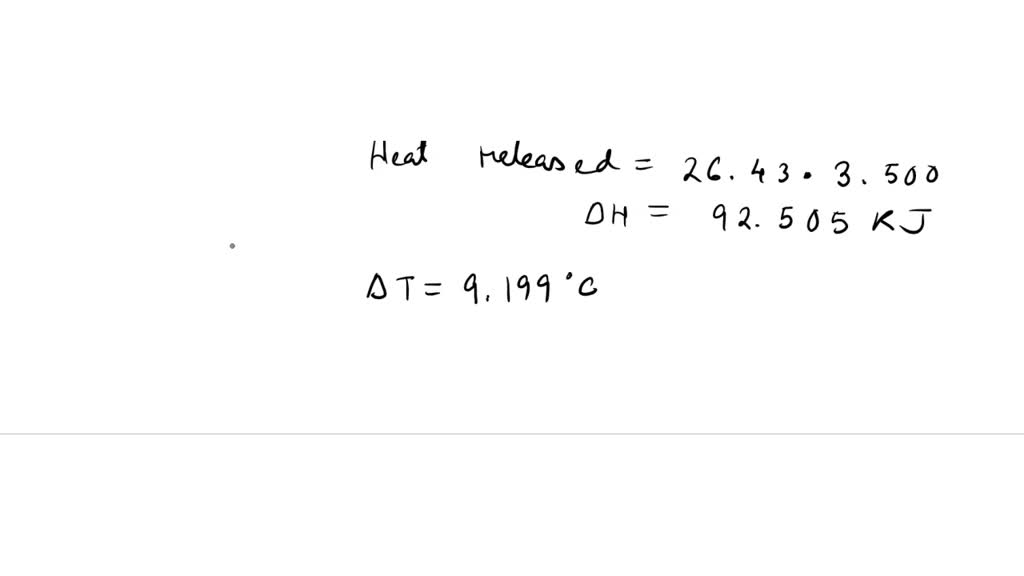 Heat released = 26.43 · 3.500
ΔH = 92.505 KJ
ΔT = 9.199 °C